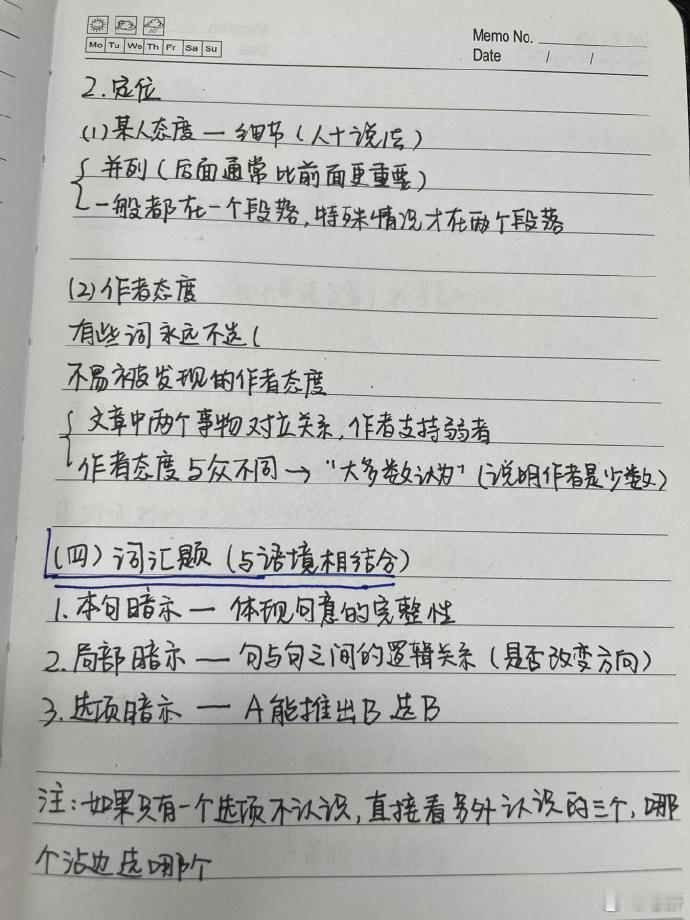 Memo No.
Mo Tu We Th Fr Sa Su
Date / /
2.定位
(1)某人态度—细节(人+说法)
并列(后面通常比前面更重要)
一般都在一个段落,特殊情况才在两个段落
(2)作者态度
有些词永远不选(
不易被发现的作者态度
文章中两个事物对立关系,作者支持弱者
作者态度与众不同→“大多数认为”(说明作者是少数)
(四)词汇题(与语境相结合)
1.本句暗示—体现句意的完整性
2.局部暗示—句与句之间的逻辑关系(是否改变方向)
3.选项暗示—A能推出B选B
注:如果只有一个选项不认识,直接看另外认识的三个,哪
个沾边选哪个